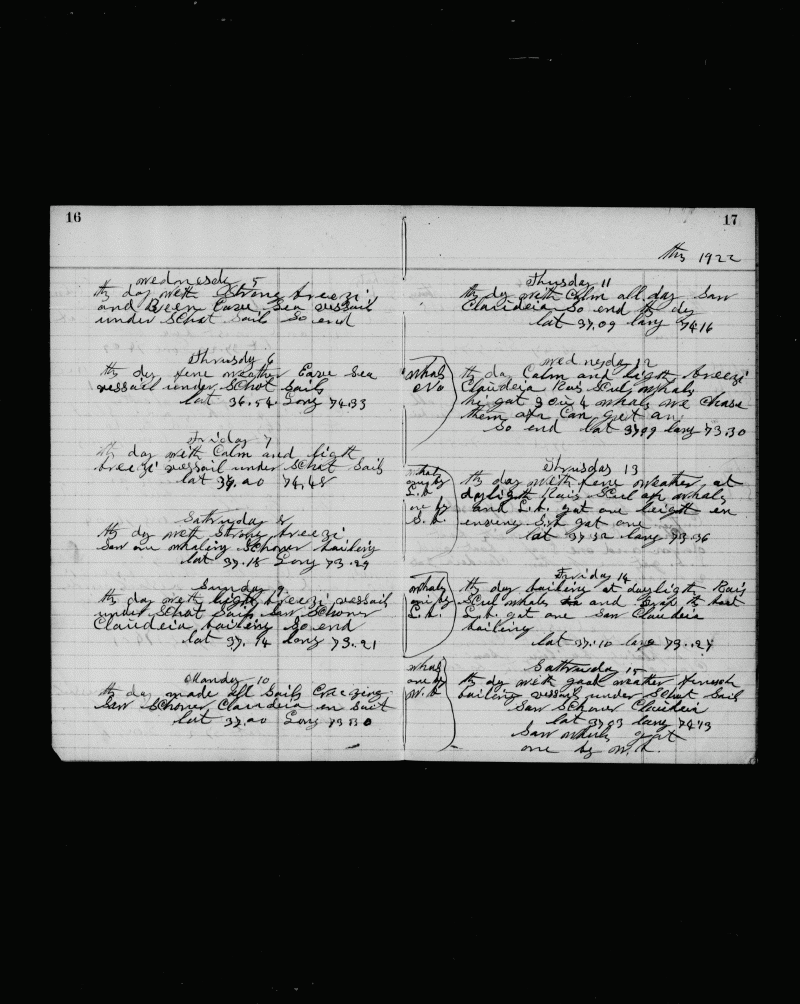 16
wednesday 5
ths day with Strong breezi
and Been Cave Sea vessail
under Schat Sail So end
Thrusday 6
ths day fene weather Cave Sea
vessail under Schot Sails
lat 36.54 Long 74.33
Friday 7
ths day with Calm and light
breezi vessail under Schat Sails
lat 37.20 74.48
Sathruday 8
ths day with Strong breezi
Saw one whaling Schoner bailing
lat 37.18 Long 73.29
Sunday 9
ths day with light breezi vessail
under Schat Sails Saw Schoner
Claudeia bailing So end
lat 37.14 long 73.21
Monday 10
ths day made all Sails Creezing
Saw Schoner Claudeia en Sait
lat 37.20 Long 73.30
17
ths 1922
Thusday 11
ths day with Calm all day Saw
Claudeia So end ths day
lat 37.09 long 74.16
wednesday 12
whals
No
ths day Calm and light breezi
Claudeia Rais Scul whals
hi gat 3 our 4 whals we Chase
them
Can Cat get an
So end lat 37.09 long 73.30
Thrusday 13
whals
one by
L.b.
one by
S.b.
ths day with fene weather at
daylight Rais Scul of whals
and L.b. gat one
en
evening S.b. gat one
lat 37.32 long 73.36
Friday 14
whals
one by
L.b.
ths day bailing at daylight Rais
Scul whals and
th boat
L.b. gat one Saw Claudeia
bailing
lat 37.10 long 73.27
Sathruday 15
whals
one by
W.b.
ths day with goah weather finesh
bailing vessail under Schat Sail
Saw Schoner Claudeia
lat 37.03 long 74.13
Saw whals gat
one by W.b.